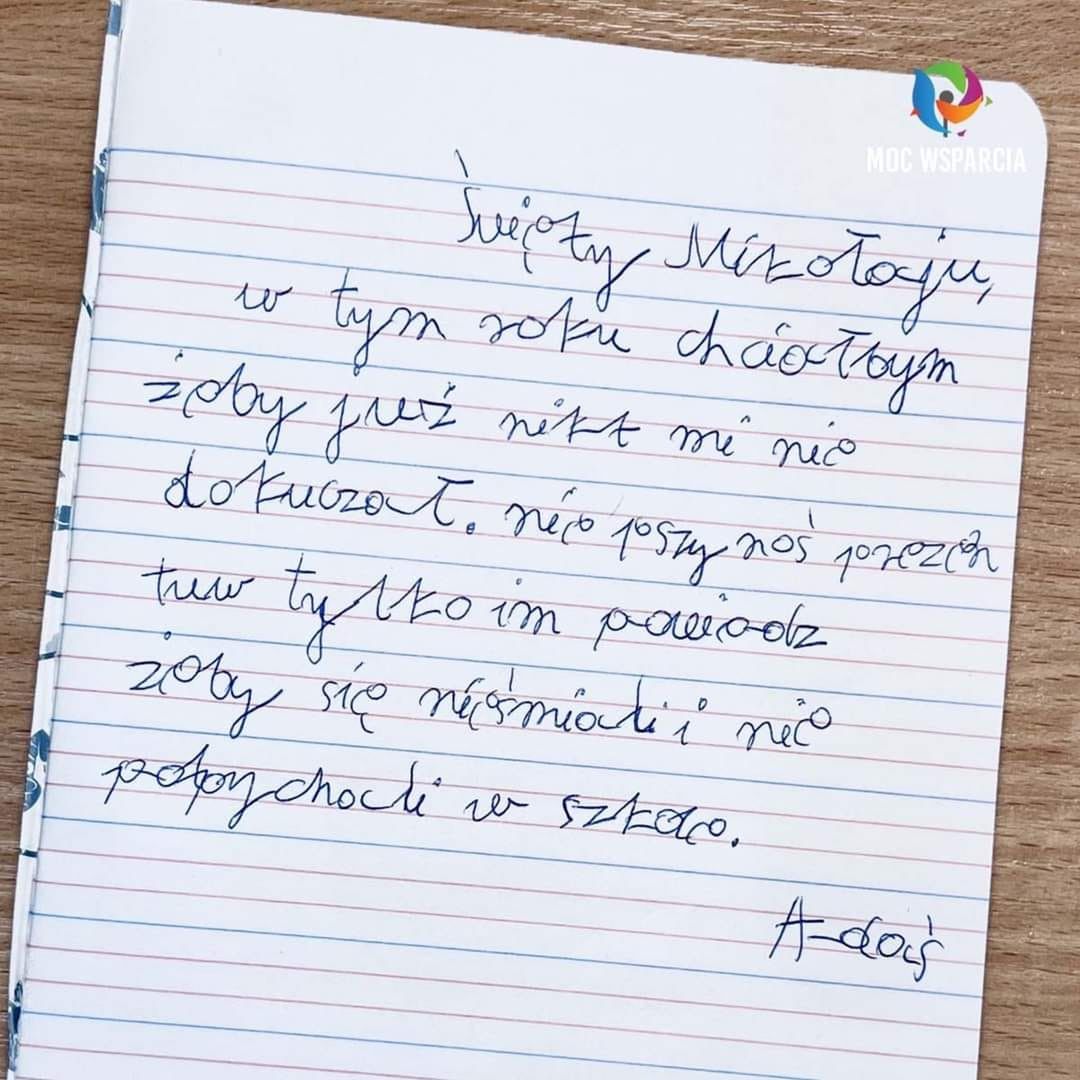 MOC WSPARCIA
Święty Mikołaju,
w tym roku chciałbym
żeby już nikt mi nie
dokuczał. nie poszy noś prezen
tuw tylko im powiedz
żeby się nieśmiali i nie
popychali w szkole.
Adaś